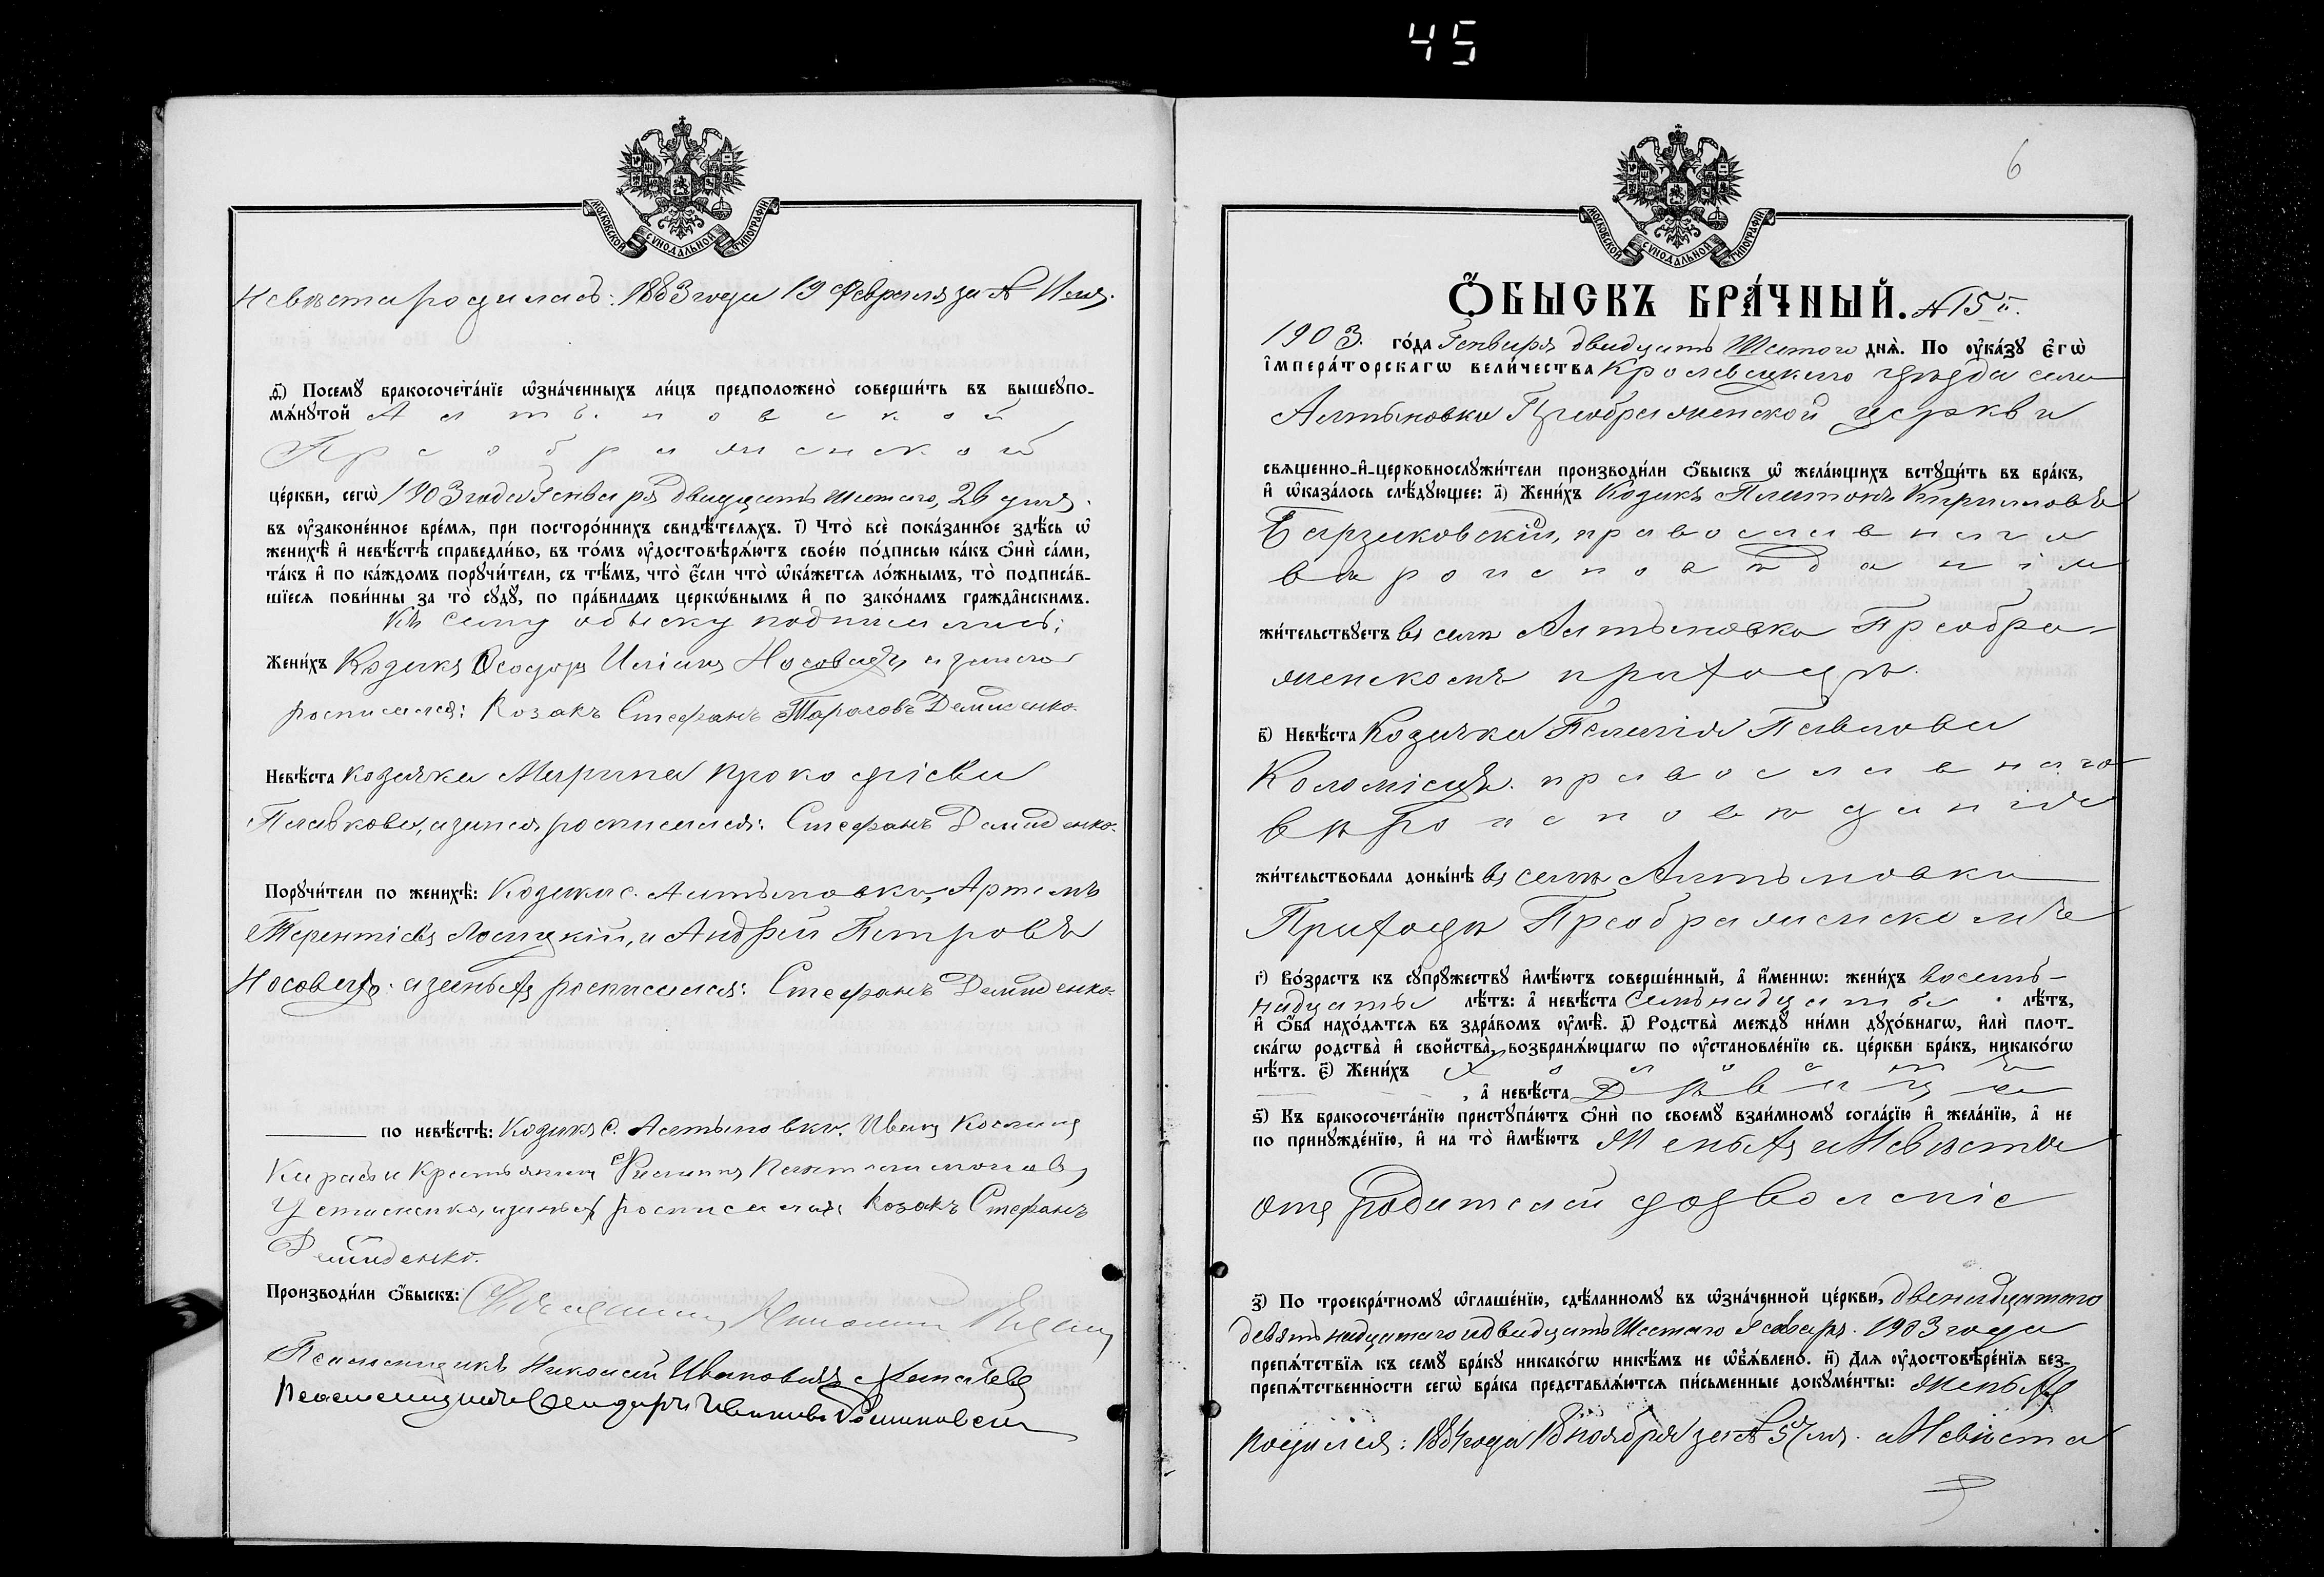 45
МОСКОВСКОЙ СѴНОДАЛЬНОЙ ТИПОГРАФІИ
Невѣста родилась: 1883 года 19 Февраля за №
д҃) Посемꙋ бракосочета́нїе ѡ҆зна́ченныхъ ли́цъ предположено̀ соверши́ть въ вышеꙋпо-
мѧ́нꙋтой Алтыновской
Преображенской
це́ркви, сегѡ̀ 1903 года Генваря двадцать шестаго, 26 дня.
въ ᲂу҆зако́ненное вре́мѧ, при посторо́ннихъ свидѣ́телѧхъ. і҃) Что̀ всѐ пока́занное здѣ́сь ѡ҆
женихѣ̀ и҆ невѣ́стѣ справедли́во, въ то́мъ ᲂу҆достовѣрѧ́ютъ свое́ю по́дписью ка́къ ѻ҆нѝ са́ми,
та́къ и҆ по ка́ждомъ порꙋчи́тели, съ тѣ́мъ, что̀ є҆́сли что̀ ѡ҆ка́жетсѧ ло́жнымъ, то̀ подписа́в-
шїесѧ пови́нны за то̀ сꙋдꙋ̀, по пра́виламъ церкѡ́внымъ и҆ по зако́намъ гражда̂нскимъ.
Къ сему обыску подписались:
Жени́хъ Козакъ Ѳеодоръ Носовецъ а за него
росписался: Козакъ Стефанъ Тарасовъ Демиденко.
Невѣ́ста козачка Марина Прокофіева
Павкова, а за нея росписался: Стефанъ Демиденко.
Порꙋчи́тели по женихѣ̀: Козаки с. Алтыновки, Артемъ
Терентіевъ Лосицкій, и Андрей Петровъ
Носовецъ. а за нихъ росписался: Стефанъ Демиденко.
по невѣ́стѣ: Козакъ с. Алтыновки. Иванъ Косминъ
и Крестьянинъ Филиппъ Пантелимоновъ
Устименко, а за нихъ росписался Козакъ Стефанъ
Демиденко.
Производи́ли ѻ҆́быскъ: Священникъ
Псаломщикъ Николай Ивановичъ
Псаломщикъ
6
МОСКОВСКОЙ СѴНОДАЛЬНОЙ ТИПОГРАФІИ
Ѻ҆́БЫСКЪ БРА́ЧНЫЙ. №15й.
1903. го́да Генваря двадцать Шестого днѧ̀. По ᲂу҆ка́зꙋ є҆гѡ̀
і҆мпера́торскагѡ вели́чества Кролевецкаго уѣзда села
Алтыновки Преображенской церкви
свѧще́нно-и҆-церковнослꙋжи́тели производи́ли ѻ҆́быскъ ѡ҆ жела́ющихъ встꙋпи́ть въ бра́къ,
и҆ ѡ҆каза́лось слѣ́дꙋющее: а҃) Жени́хъ Козакъ Платонъ Кирилловъ
православнаго
вѣроисповѣданія
жи́тельствꙋетъ въ селѣ Алтыновка Преобра-
женскомъ приходѣ.
в҃) Невѣ́ста Козачка Пелагія Павлова
Коломіецъ. православнаго
вѣроисповѣданія
жи́тельствовала доны́нѣ въ селѣ Алтыновки
Приходѣ Преображенскомъ
г҃) Во́зрастъ къ сꙋпрꙋ́жествꙋ и҆мѣ́ютъ соверше́нный, а҆ и҆́меннѡ: жени́хъ восемь-
надцать лѣ́тъ: а҆ невѣ́ста семьнадцать лѣ́тъ,
и҆ ѻ҆́ба нахо́дѧтсѧ въ здра́вомъ ᲂу҆мѣ̀. д҃) Родства̀ междꙋ̀ ни́ми дꙋхо́внагѡ, и҆лѝ плот-
ска́гѡ родства̀ и҆ свойства̀, возбранѧ́ющагѡ по ᲂу҆становле́нїю св. це́ркви бра́къ, никако́гѡ
нѣ́тъ. є҃) Жени́хъ Холостъ
, а҆ невѣ́ста Дѣвица
ѕ҃) Къ бракосочета́нїю пристꙋпа́ютъ ѻ҆нѝ по своемꙋ̀ взаи́мномꙋ согла́сїю и҆ жела́нїю, а҆ не
по принꙋжде́нїю, и҆ на то̀ и҆мѣ́ютъ Женихъ и Невѣста
отъ родителей дозволеніе
з҃) По троекра́тномꙋ ѡ҆глаше́нїю, сдѣ́ланномꙋ въ ѡ҆зна́ченной це́ркви, двенадцатого
девятьнадцатаго и двадцать Шестаго Января. 1903 года
препѧ́тствїѧ къ семꙋ̀ бра́кꙋ никако́гѡ никѣ́мъ не ѡ҆б̾ѧ́влено. и҃) Длѧ̀ ᲂу҆достовѣре́нїѧ без-
препѧ́тственности сегѡ̀ бра́ка представлѧ́ютсѧ пи́сьменные докꙋме́нты: женихъ
родился: 1884 года 18 ноября за № 57 а Невѣста